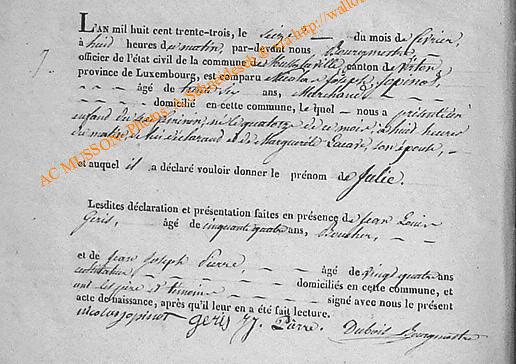 7.
L'AN mil huit cent trente-trois, le seize du mois de février,
à huit heures du matin, par-devant nous Bourgmestre,
officier de l'état civil de la commune de ville, canton de Virton,
province de Luxembourg, est comparu Nicolas Joseph Jopinot,
âgé de trente six ans, Marchand,
domicilié en cette commune, lequel nous a présenté un
enfant du sexe féminin, né le quatorze de ce mois, à huit heures
du matin, de lui déclarant et de Marguerite son épouse,
et auquel il a déclaré vouloir donner le prénom de Julie.
Lesdites déclaration et présentation faites en présence de Jean Louis
Geris, âgé de cinquante quatre ans, Boucher,
et de Jean Joseph Pierre, âgé de vingt quatre ans
cultivateur domiciliés en cette commune, et
ont les père et témoins signé avec nous le présent
acte de naissance, après qu'il leur en a été fait lecture.
nicolas jopinot geris JJ. Pierre. Dubois Bourgmestre
AC MUSSON